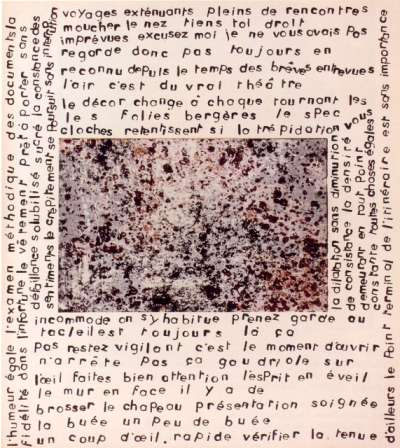 voyages exténuants pleins de rencontres
moucher le nez tiens tol droit
imprévues excusez moi je ne vous avais pas
regarde donc pas toujours en
reconnu depuis le temps des brèves entrevues
l'air c'est du vrai théâtre
le décor change à chaque tournant les
les folies bergères le spec
cloches retentissent si la trépidation vous
incommode on s'y habitue prenez garde au
tacle il est toujours là ça
pas restez vigilant c'est le moment d'ouvrir
n'arrête pas ça goudriole sur
l'œil faites bien attention l'esprit en éveil
le mur en face il y a de
brosser le chapeau présentation soignée
la buée un peu de buée
un coup d'œil rapide vérifier la tenue
l'humeur égale l'examen méthodique des documents la
fidélité dans l'infortune le vêrement prêt à porter sans
défaillance solubilisé sucré la constance des
sentiments le crépitement se poursuit sans interruption
la dilatation sans diminution
de consistance la densité
demeurant en tout point
constante toutes choses égales
d'ailleurs le point terminal de l'itinéraire est sans importance